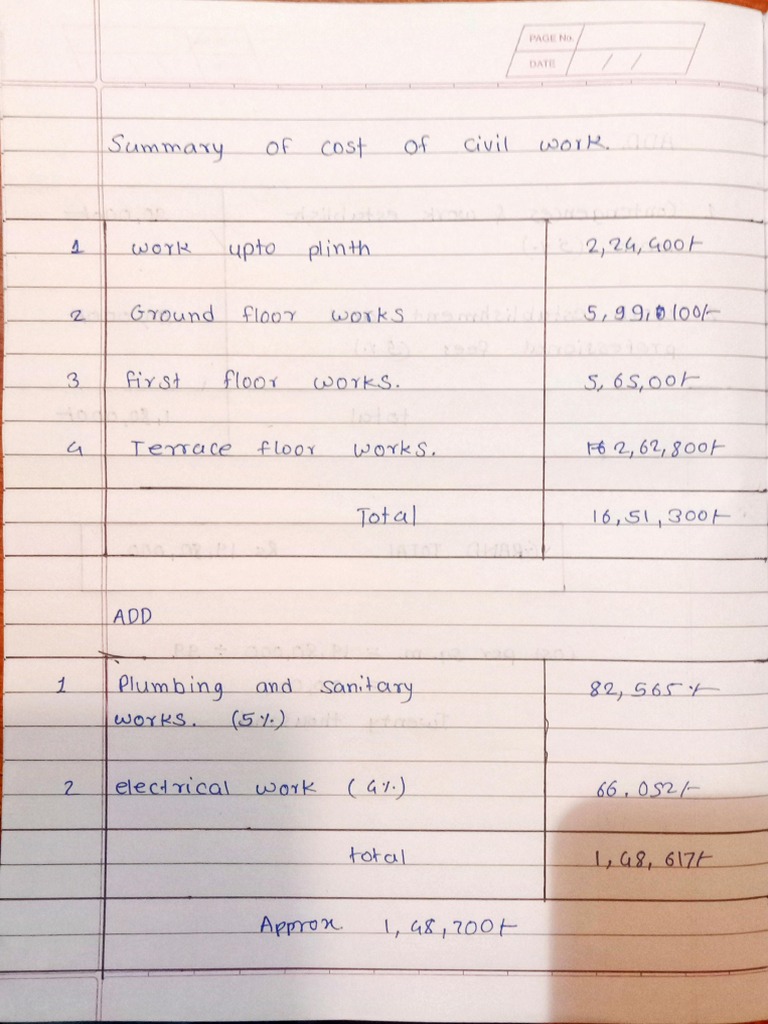 PAGE No.
DATE / /
Summary of cost of civil work.
1 work upto plinth 2,24,400/-
2 Ground floor works 5,99,100/-
3 first floor works. 5,65,00/-
4 Terrace floor works. 2,62,800/-
Total 16,51,300/-
ADD
1 Plumbing and sanitary 82,565/-
works. (5%)
2 electrical work (4%) 66.052/-
total 1,48,617/-
Approx. 1,48,700/-